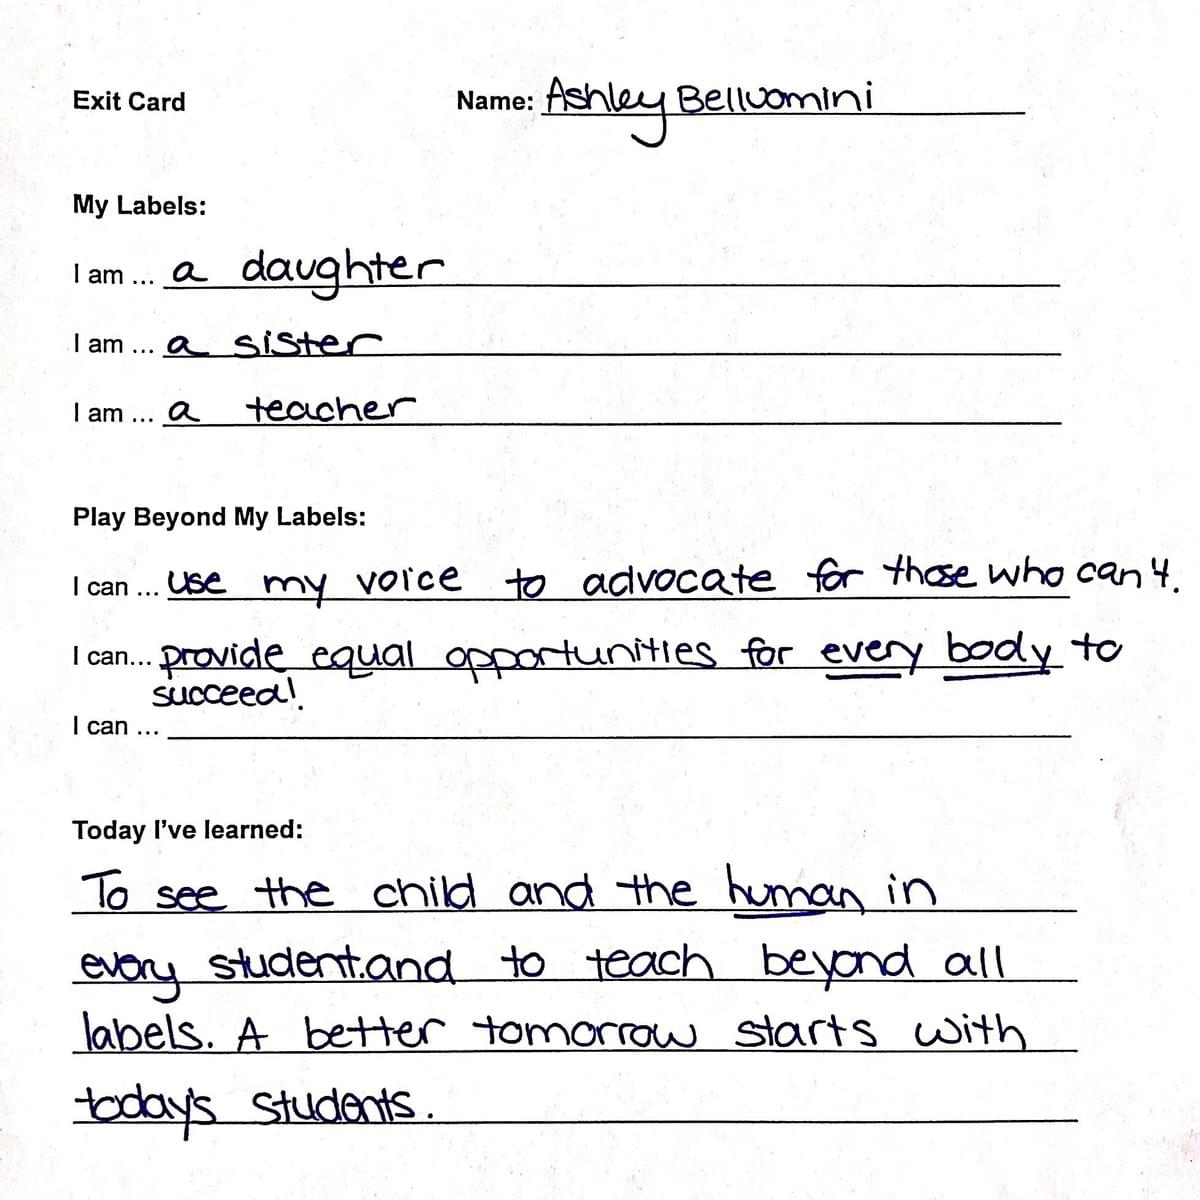 Exit Card Name: Ashley Belluomini
My Labels:
I am ... a daughter
I am ... a sister
I am ... a teacher
Play Beyond My Labels:
I can ... use my voice to advocate for those who can't.
I can... provide equal opportunities for every body to
succeed!
I can ...
Today I've learned:
To see the child and the human in
every student.and to teach beyond all
labels. A better tomorrow starts with
today's students.